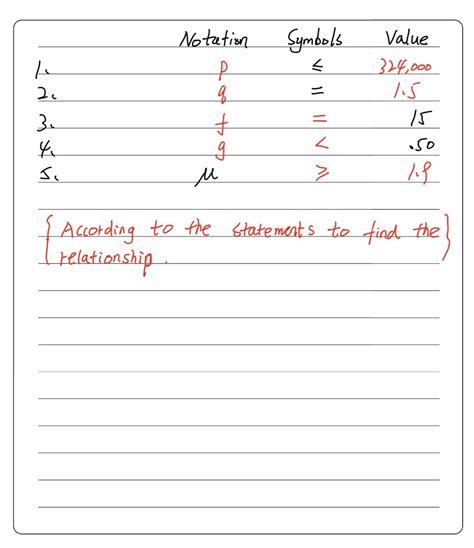 Notation Symbols Value
1. p ≤ 324,000
2. q = 1.5
3. f = 15
4. g < .50
5. μ ≥ 1.9
{ According to the statements to find the }
relationship.